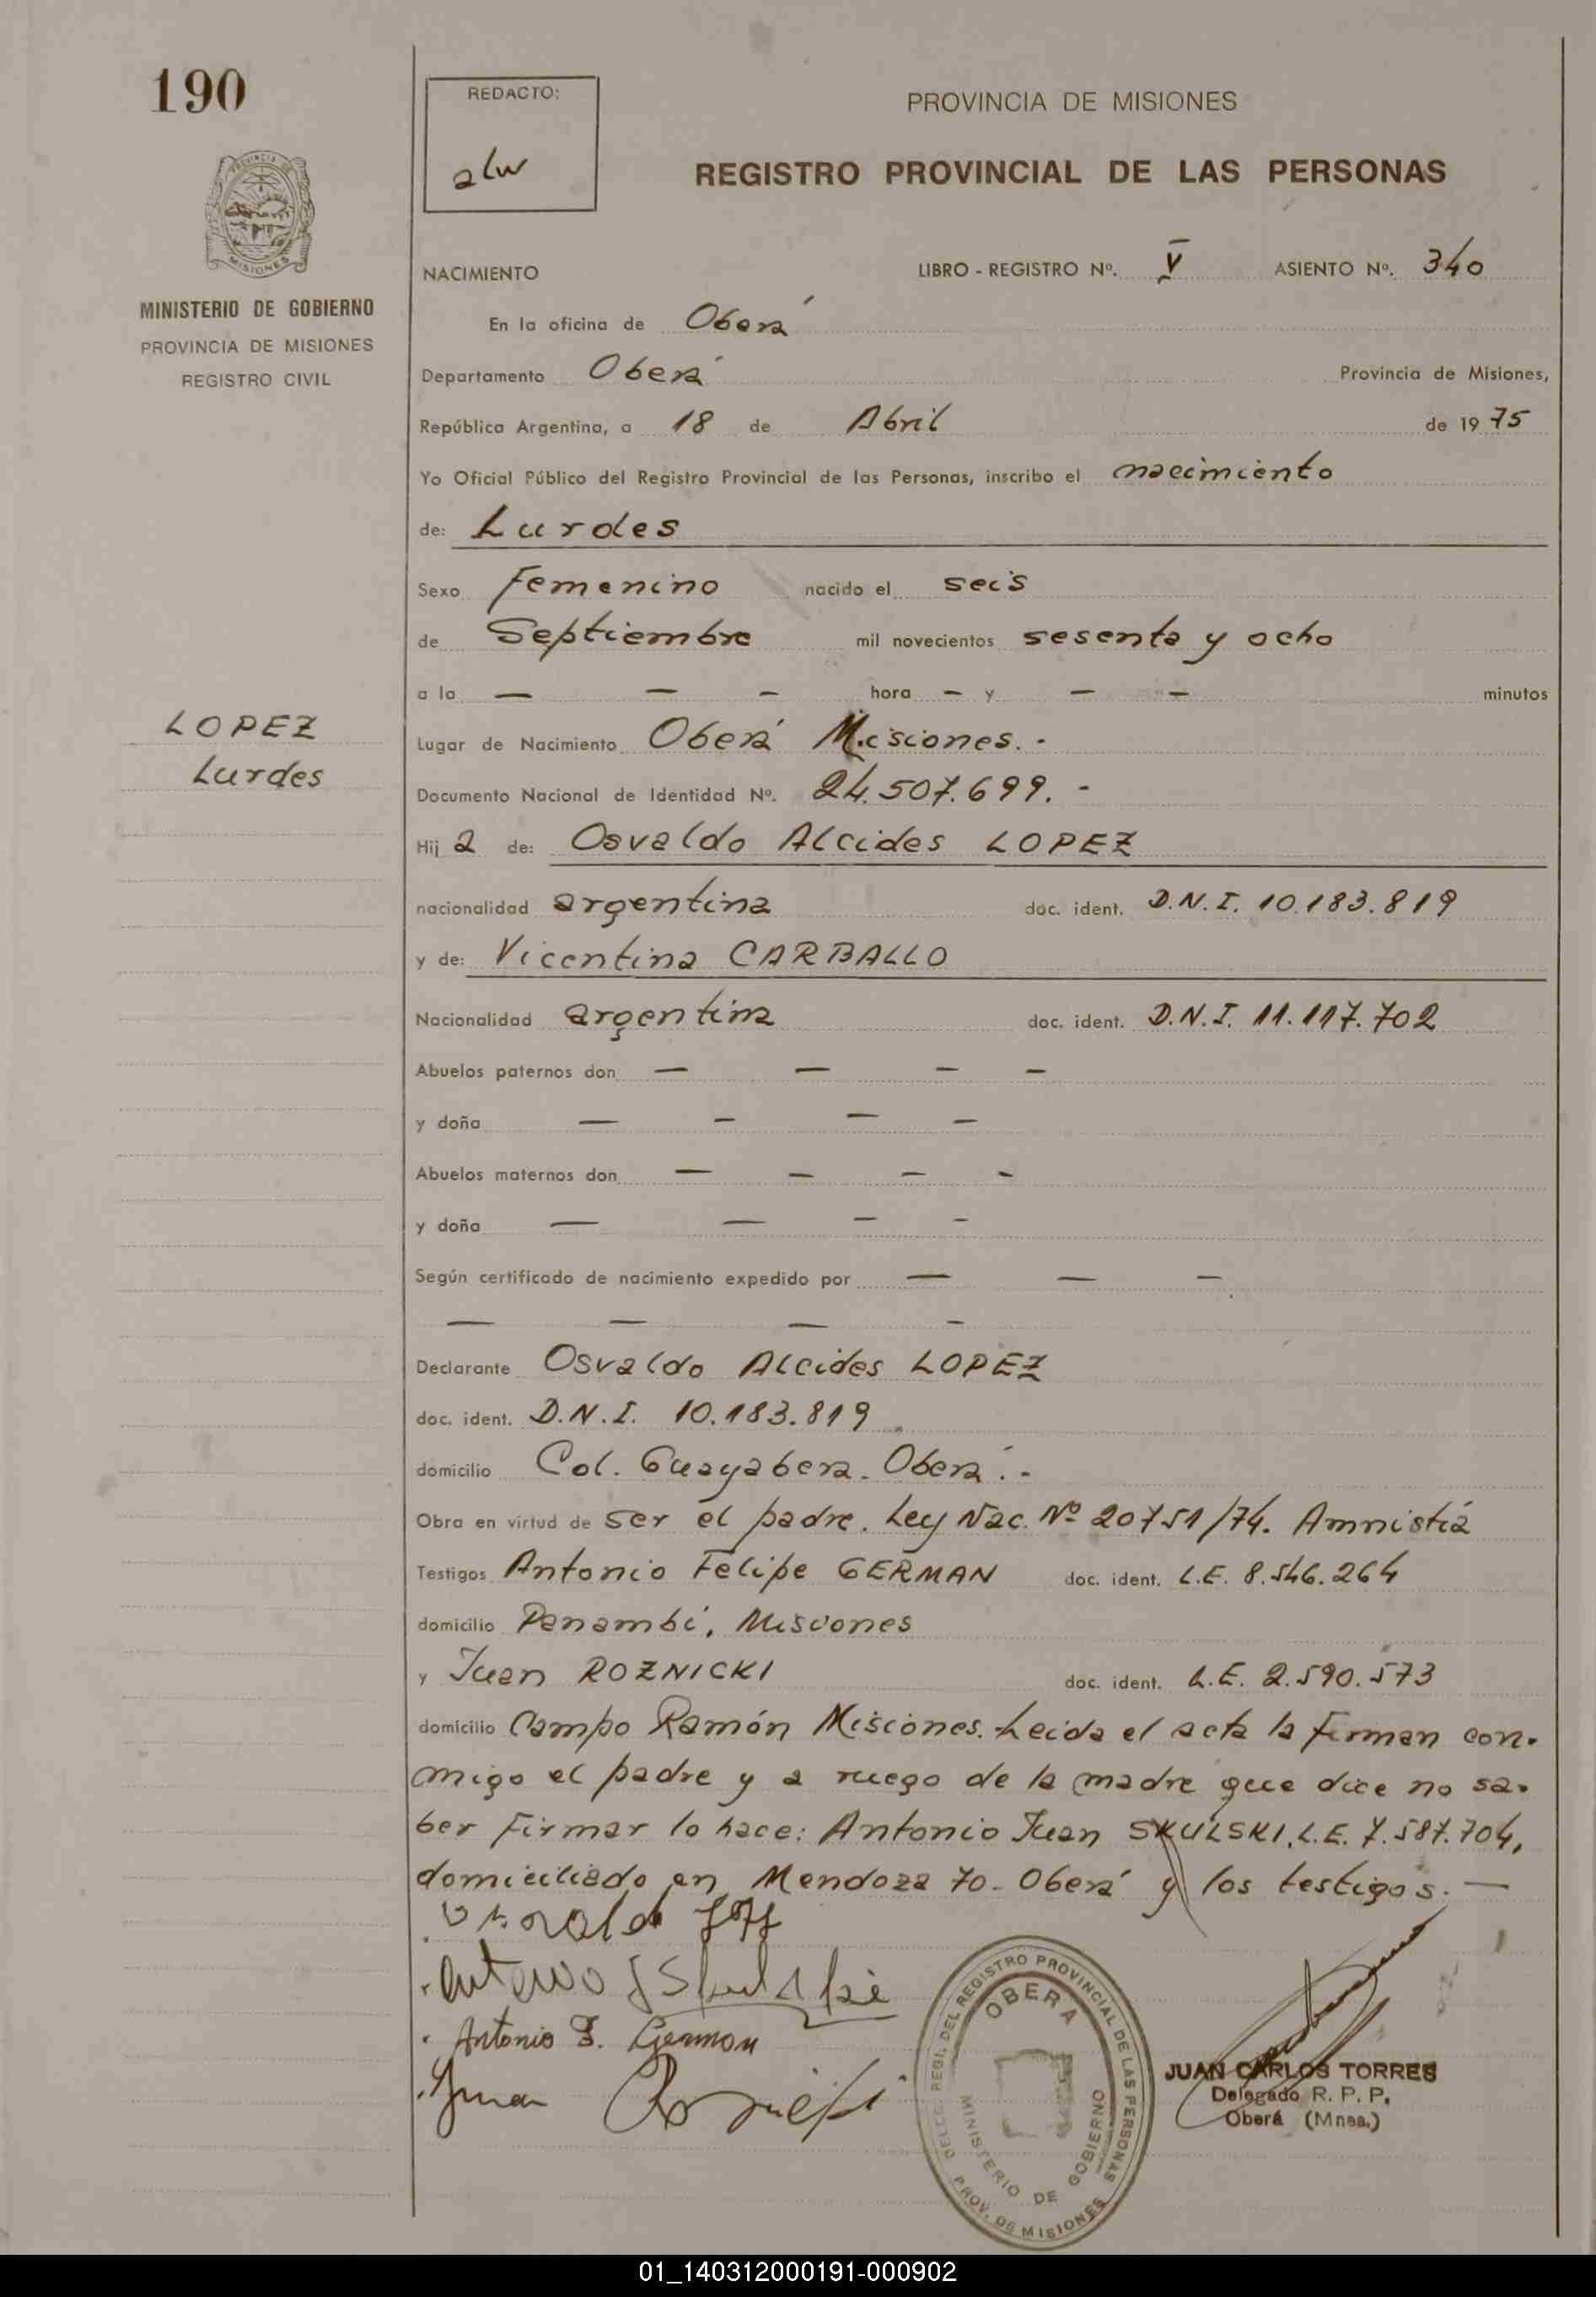 190
REDACTO:
alw
PROVINCIA DE MISIONES
REGISTRO PROVINCIAL DE LAS PERSONAS
PROVINCIA DE
MISIONES
MINISTERIO DE GOBIERNO
PROVINCIA DE MISIONES
REGISTRO CIVIL
NACIMIENTO LIBRO - REGISTRO Nº. V ASIENTO Nº. 340
En la oficina de Oberá
Departamento Oberá Provincia de Misiones,
República Argentina, a 18 de Abril de 1975
Yo Oficial Público del Registro Provincial de las Personas, inscribo el nacimiento
de: Lurdes
Sexo Femenino nacido el seis
de Septiembre mil novecientos sesenta y ocho
a la — — — hora — y — — minutos
LOPEZ
Lurdes
Lugar de Nacimiento Oberá Misiones. -
Documento Nacional de Identidad Nº. 24.507.699. -
Hij a de: Osvaldo Alcides LOPEZ
nacionalidad argentina doc. ident. D.N.I. 10.183.819
y de: Vicentina CARBALLO
Nacionalidad argentina doc. ident. D.N.I. 11.117.702
Abuelos paternos don — — — —
y doña — — — —
Abuelos maternos don — — — —
y doña — — — —
Según certificado de nacimiento expedido por — — —
— — — —
Declarante Osvaldo Alcides LOPEZ
doc. ident. D.N.I. 10.183.819
domicilio Col. Guayabera - Oberá. -
Obra en virtud de ser el padre. Ley Nac. Nº 20751/74. Amnistía
Testigos Antonio Felipe GERMAN doc. ident. L.E. 8.546.264
domicilio Panambí, Misiones
y Juan ROZNICKI doc. ident. L.E. 2.590.573
domicilio Campo Ramón Misiones. Leida el acta la firman con-
migo el padre y a ruego de la madre que dice no sa-
ber firmar lo hace: Antonio Juan SKULSKI, L.E. 7.587.704,
domiciliado en Mendoza 70 - Oberá y los testigos. —
Antonio J Skulski
Antonio F. German
Juan
DELEG. REGI. DEL REGISTRO PROVINCIAL DE LAS PERSONAS
OBERA
MINISTERIO DE GOBIERNO
PROV. DE MISIONES
JUAN CARLOS TORRES
Delegado R. P. P.
Oberá (Mnes.)
01_140312000191-000902